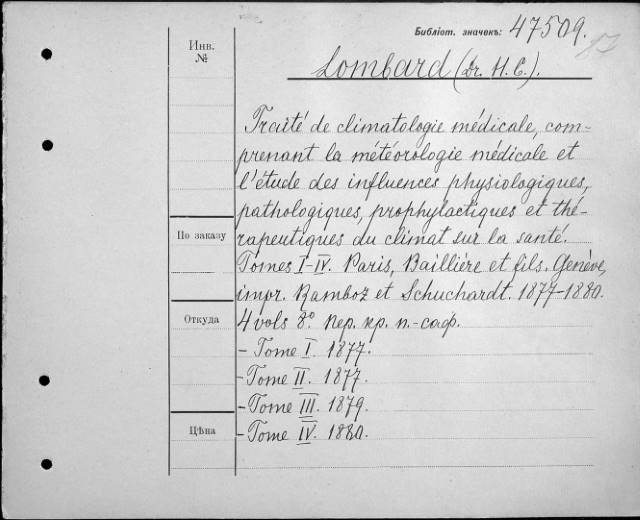 Библіот. значекъ: 47509.
Инв.
№
Lombard (Dr. H. C.).
Traité de climatologie médicale, com-
prenant la météorologie médicale et
l'étude des influences physiologiques,
pathologiques, prophylactiques et thé-
По заказу
rapeutiques du climat sur la santé.
Tomes I-IV. Paris, Baillière et fils. Genève,
impr. Ramboz et Schuchardt. 1877-1880.
Откуда
4 vols 8º. пер. кр. п.-саф.
- Tome I. 1877.
- Tome II. 1877.
- Tome III. 1879.
- Tome IV. 1880.
Цѣна